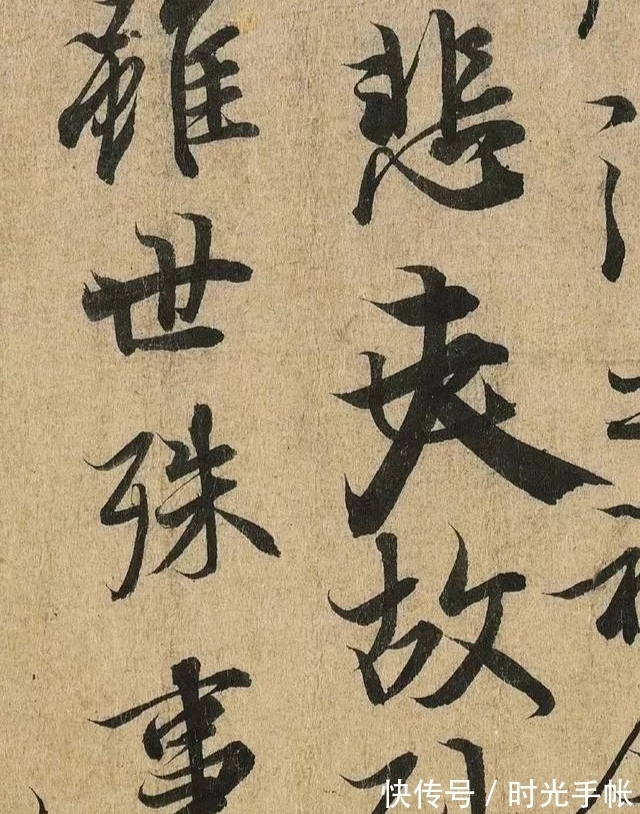 悲夫故
雖世殊事
快传号/时光手帐